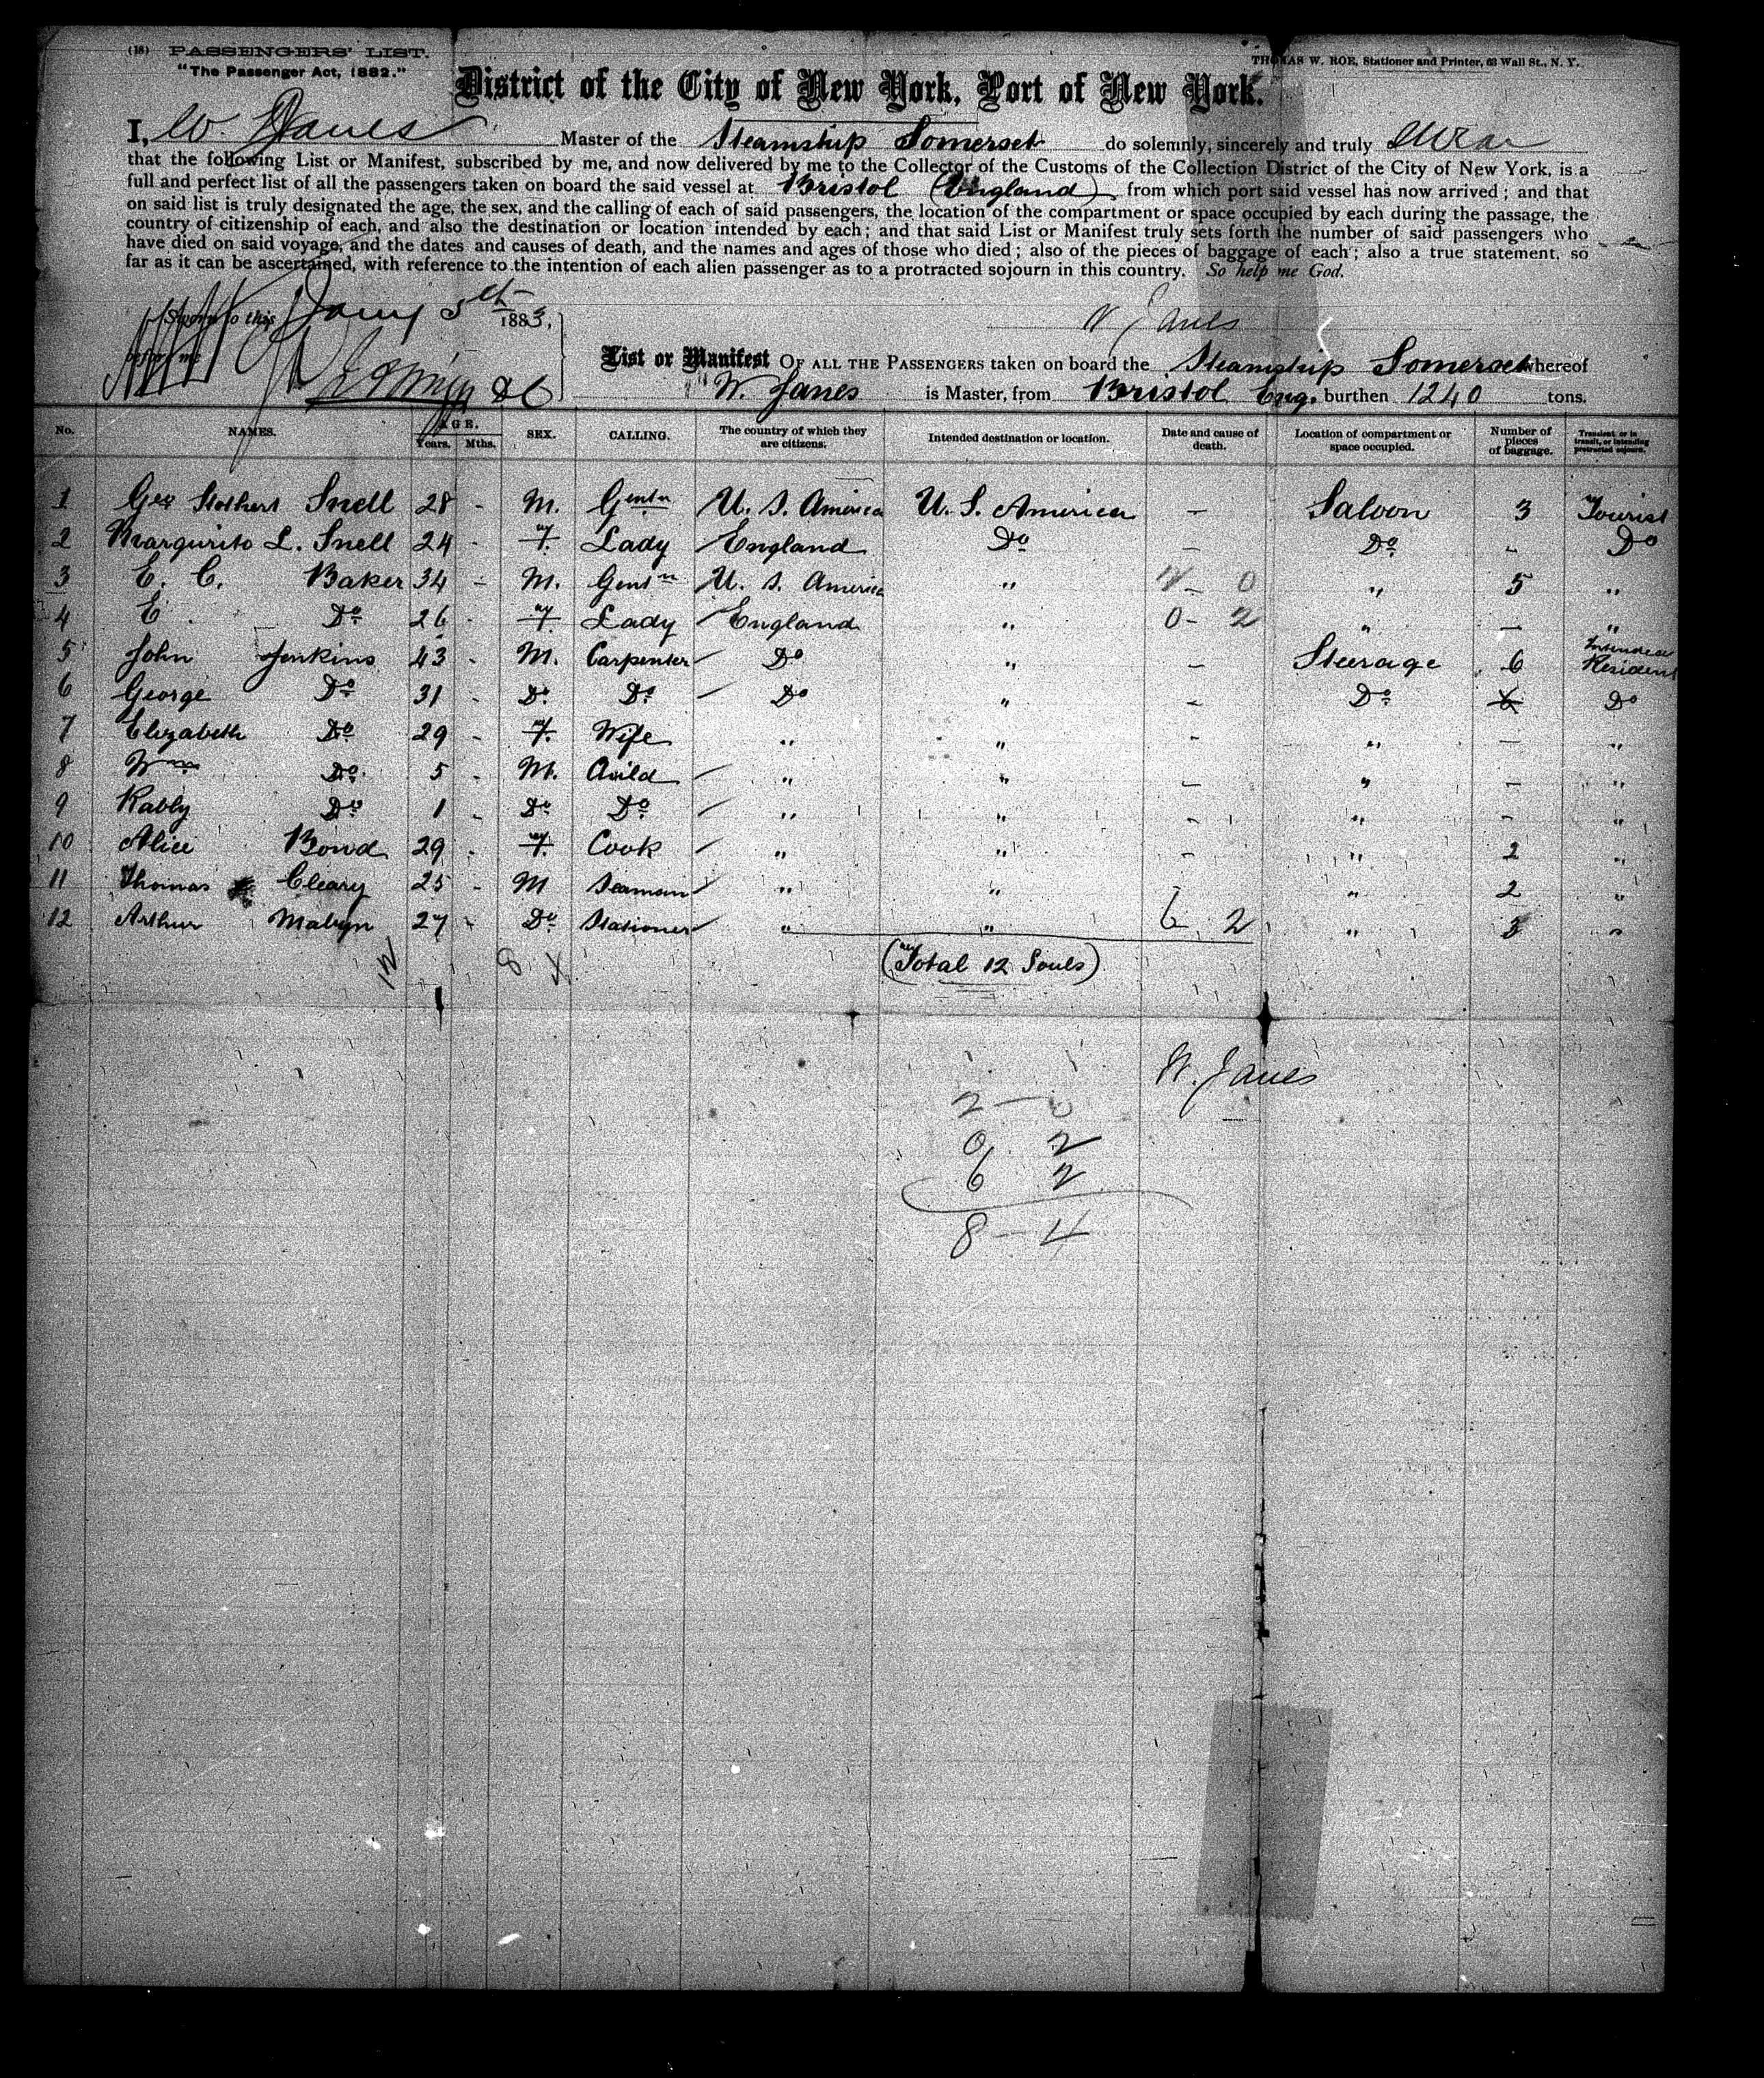 (18) PASSENGERS' LIST.
"The Passenger Act, 1882."
THOMAS W. ROE, Stationer and Printer, 63 Wall St., N. Y.
District of the City of New York, Port of New York.
I, W. Janes Master of the Steamship Somerset do solemnly, sincerely and truly swear
that the following List or Manifest, subscribed by me, and now delivered by me to the Collector of the Customs of the Collection District of the City of New York, is a
full and perfect list of all the passengers taken on board the said vessel at Bristol (England) from which port said vessel has now arrived; and that
on said list is truly designated the age, the sex, and the calling of each of said passengers, the location of the compartment or space occupied by each during the passage, the
country of citizenship of each, and also the destination or location intended by each; and that said List or Manifest truly sets forth the number of said passengers who
have died on said voyage, and the dates and causes of death, and the names and ages of those who died; also of the pieces of baggage of each; also a true statement, so
far as it can be ascertained, with reference to the intention of each alien passenger as to a protracted sojourn in this country. So help me God.
Sworn to this Jany 5th 1883,
W Janes
before me
List or Manifest OF ALL THE PASSENGERS taken on board the Steamship Somerset whereof
W. Janes is Master, from Bristol Eng. burthen 1240 tons.
No. NAMES. AGE. Years. Mths. SEX. CALLING. The country of which they are citizens. Intended destination or location. Date and cause of death. Location of compartment or space occupied. Number of pieces of baggage. Transient or in transit, or intending protracted sojourn.
1 Geo Stothert Snell 28 - M. Gentn U. S. America U. S. America - Saloon 3 Tourist
2 Margurito L. Snell 24 - F. Lady England Do - Do " Do
3 E. C. Baker 34 - M. Gentn U. S. America " 2 - 0 " 5 "
4 E. Do 26 - F. Lady England " 0 - 2 " - "
5 John Jenkins 43 - M. Carpenter Do " - Steerage 6 Intended Resident
6 George Do 31 - Do Do Do " - Do 6 Do
7 Elizabeth Do 29 - F. Wife " " - " - "
8 Wm Do 5 - M. Child " " - " - "
9 Do 1 - Do Do " " - " - "
10 Alice Bond 29 - F. Cook " " - " 2 "
11 Thomas Cleary 25 - M Seaman " " " 2 "
12 Arthur Malvyn 27 - Do Stationer " " 6 2 " 3 "
12 8 4 (Total 12 Souls)
W. Janes
2 - 0
0 2
6 2
8 - 4